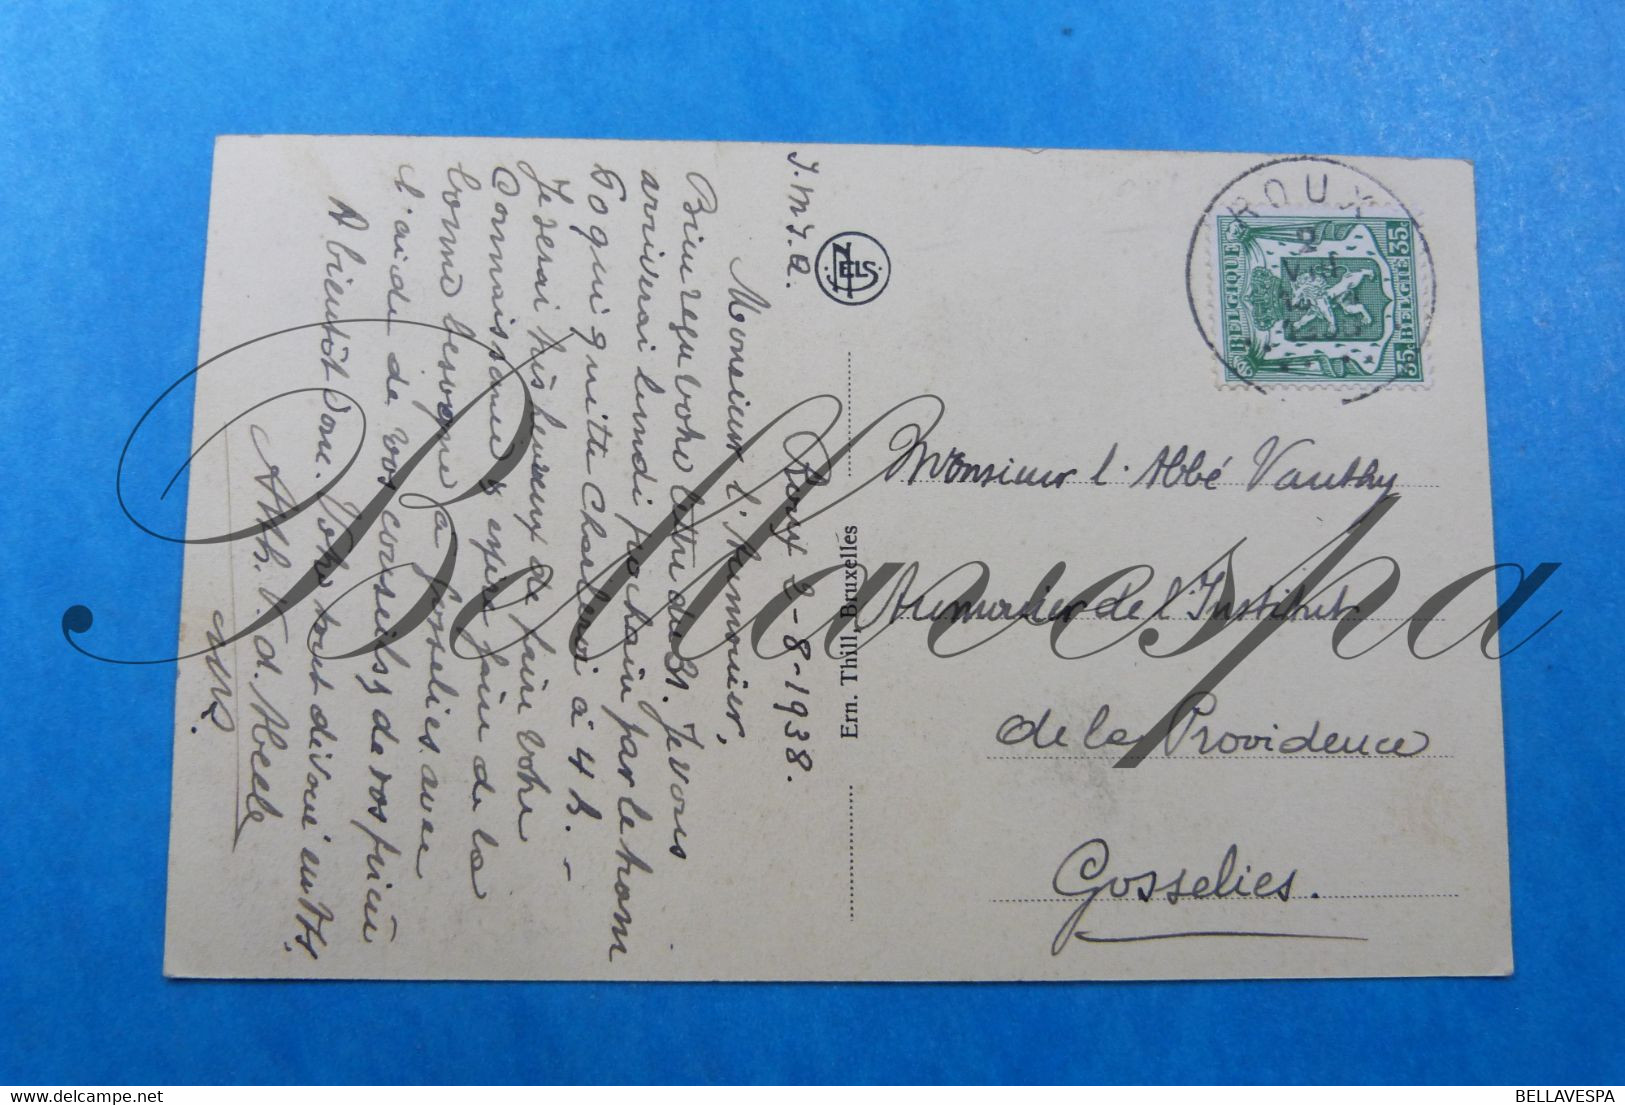 J.M.J.A.
Roux 2-8-1938.
Monsieur l'Aumonier,
Bien reçu votre lettre du 31. Je vous
arriverai lundi prochain par le tram
60 qui quitte Charleroi à 4 h. -
Je serai très heureux de faire votre
Connaissance & espère faire de la
bonne besogne à Gosselies avec
l'aide de vos conseils & de vos prières
A bientôt donc. Votre tout dévoué en N.S.
Ath. V. d. Abeele
NELS
Ern. Thill, Bruxelles
ROUX
2
VIII
BELGIQUE
BELGIË
35c
35c
Monsieur l'Abbé Vanthy
Aumonier de l'Institut
de la Providence
Gosselies.
Bellavespa
BELLAVESPA